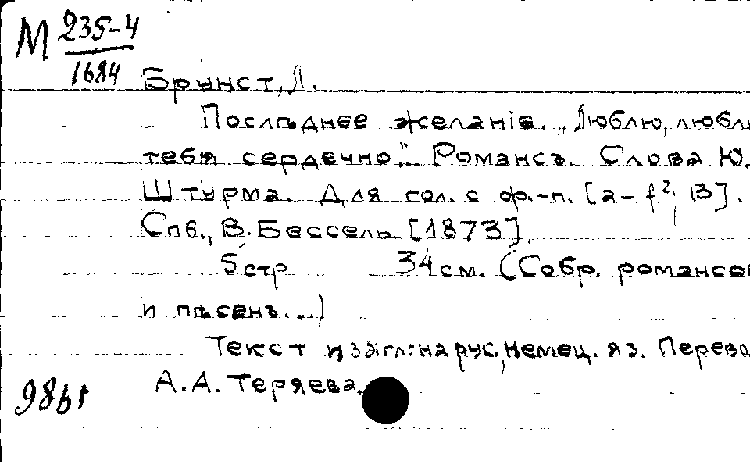 М 235-4
1684
Брунст, Л.
Послѣднее желанiе. „Люблю, люблю
тебя сердечно". Романсъ. Слова Ю.
Штурма. Для гол. с ф.-п. [a-f²; B].
Спб., В. Бессель [1873].
5 стр 34 см. (Собр. романсов
и пѣсенъ...)
Текст и загл: на рус., немец. яз. Перево
А.А. Теряева.